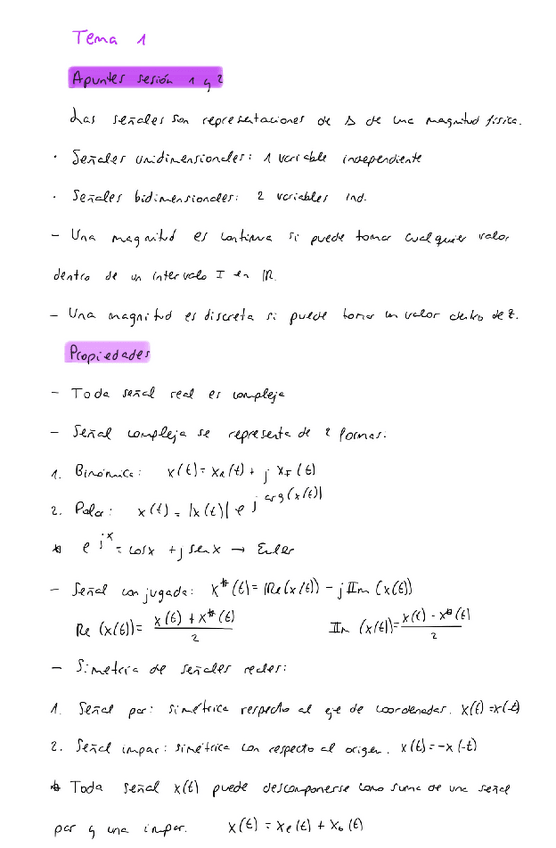 Tema 1
Apuntes sesión 1 y 2
Las señales son representaciones de Δ de una magnitud física.
· Señales unidimensionales: 1 variable independiente
· Señales bidimensionales: 2 variables ind.
- Una magnitud es continua si puede tomar cualquier valor
dentro de un intervalo I en ℝ.
- Una magnitud es discreta si puede tomar un valor dentro de ℤ.
Propiedades
- Toda señal real es compleja
- Señal compleja se representa de 2 formas:
1. Binómica: x(t) = x_R(t) + j x_I(t)
2. Polar: x(t) = |x(t)| e^{j arg(x(t))}
* e^{jx} = cosx + j senx → Euler
- Señal conjugada: x*(t) = ℝe(x(t)) - j 𝕀m (x(t))
Re (x(t)) = (x(t) + x*(t))/2 𝕀m (x(t)) = (x(t) - x*(t))/2
- Simetría de señales reales:
1. Señal par: simétrica respecto al eje de coordenadas. x(t) = x(-t)
2. Señal impar: simétrica con respecto al origen. x(t) = -x(-t)
* Toda señal x(t) puede descomponerse como suma de una señal
par y una impar. x(t) = x_e(t) + x_o(t)